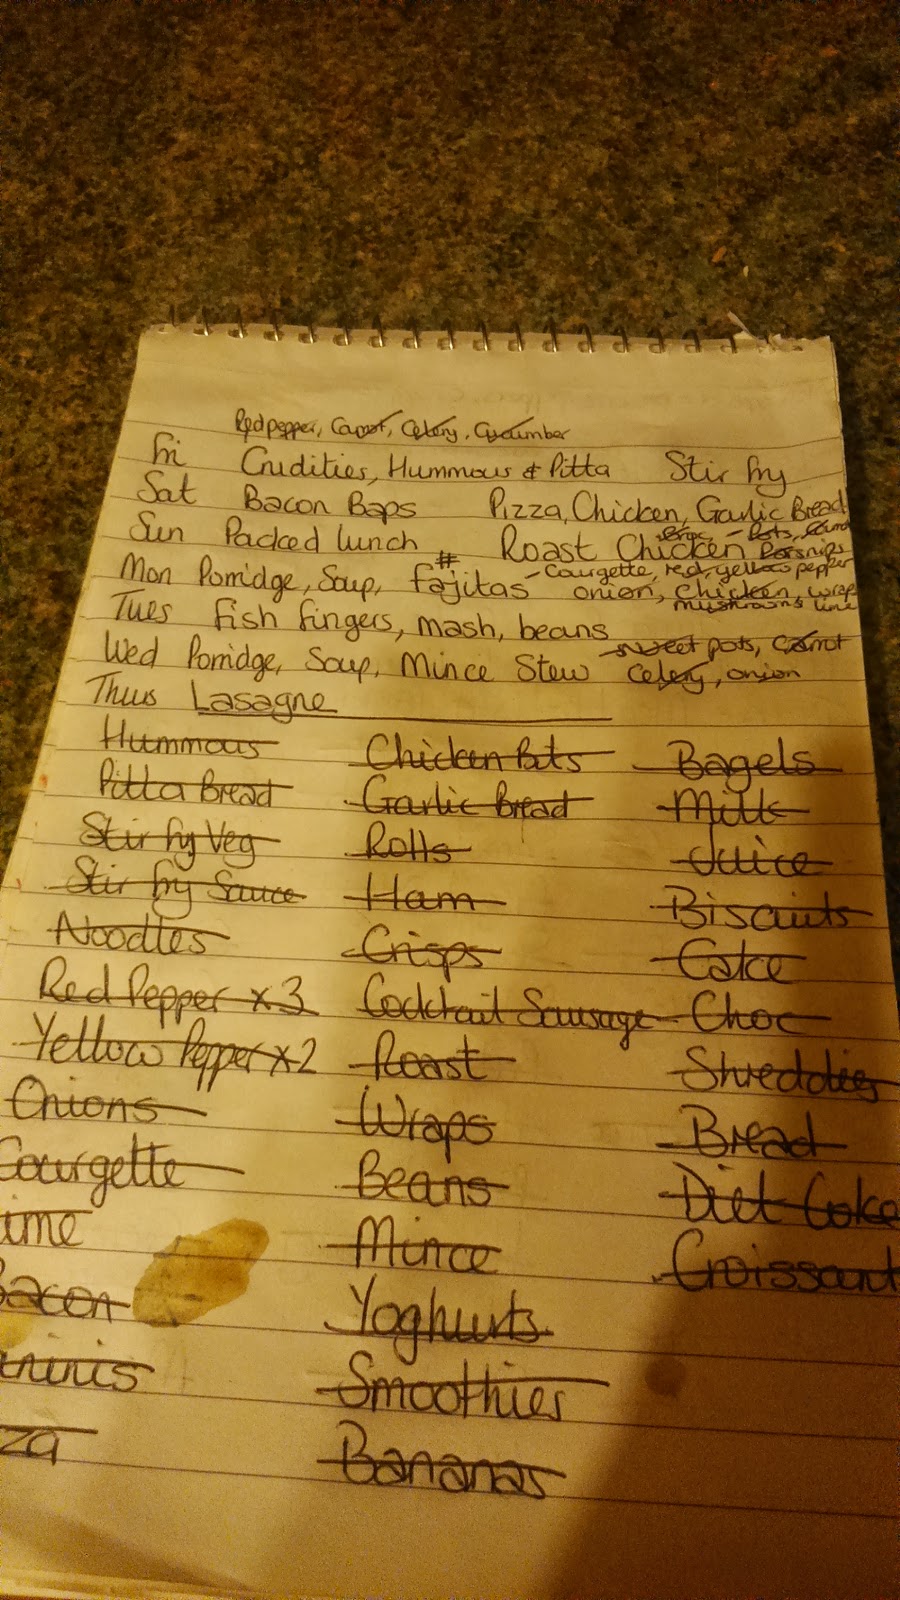 Red pepper, Carrot, Celery, Cucumber
Fri Crudities, Hummous & Pitta Stir fry
Sat Bacon Baps Pizza, Chicken, Garlic Bread
Sun Packed lunch Roast Chicken Pots, Carrot Parsnips
Mon Porridge, Soup, # fajitas - Courgette, red, yellow pepper
onion, chicken, wraps
mushrooms lime
Tues fish fingers, mash, beans
Wed Porridge, Soup, Mince Stew sweet pots, Carrot
Celery, onion
Thurs Lasagne
Hummous Chicken Bits Bagels
Pitta Bread Garlic Bread Milk
Stir fry Veg Rolls Juice
Stir fry Sauce Ham Biscuits
Noodles Crisps Cake
Red Pepper x 3 Cocktail Sausage Choc
Yellow Pepper x 2 Roast Shreddies
Onions Wraps Bread
Courgette Beans Diet Coke
ime Mince Croissant
Bacon Yoghurts
Smoothies
za Bananas